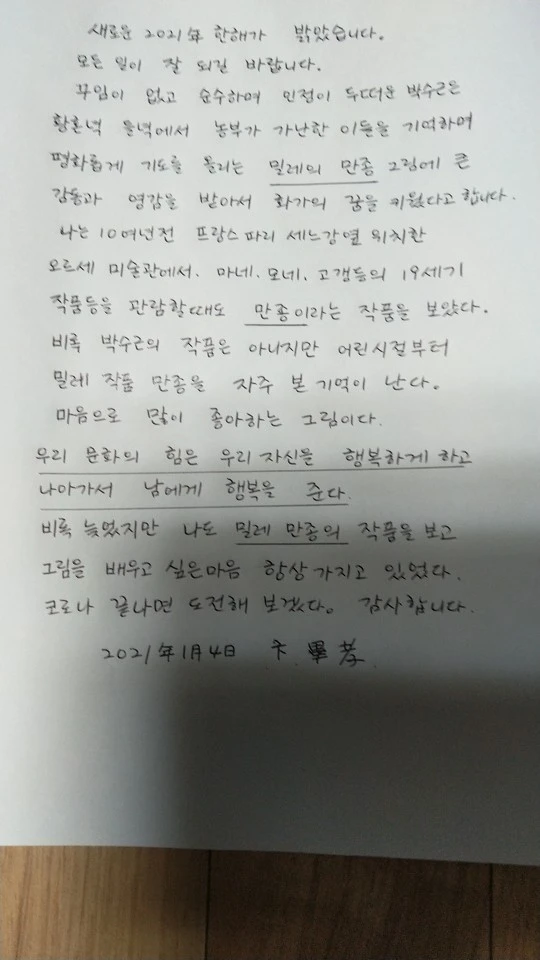 새로운 2021年 한해가 밝았습니다.
모든 일이 잘 되길 바랍니다.
꾸임이 없고 순수하며 인정이 두터운 박수근은
황혼녘 들녘에서 농부가 가난한 이들을 기억하며
평화롭게 기도를 올리는 밀레의 만종 그림에 큰
감동과 영감을 받아서 화가의 꿈을 키웠다고 합니다.
나는 10여년전 프랑스 파리 세느강옆 위치한
오르세 미술관에서. 마네. 모네. 고갱등의 19세기
작품등을 관람할때도 만종이라는 작품을 보았다.
비록 박수근의 작품은 아니지만 어린시절부터
밀레 작품 만종을 자주 본 기억이 난다.
마음으로 많이 좋아하는 그림이다.
우리 문화의 힘은 우리 자신을 행복하게 하고
나아가서 남에게 행복을 준다.
비록 늦었지만 나도 밀레 만종의 작품을 보고
그림을 배우고 싶은마음 항상 가지고 있었다.
코로나 끝나면 도전해 보겠다. 감사합니다.
2021年 1月 4日 卞 畢